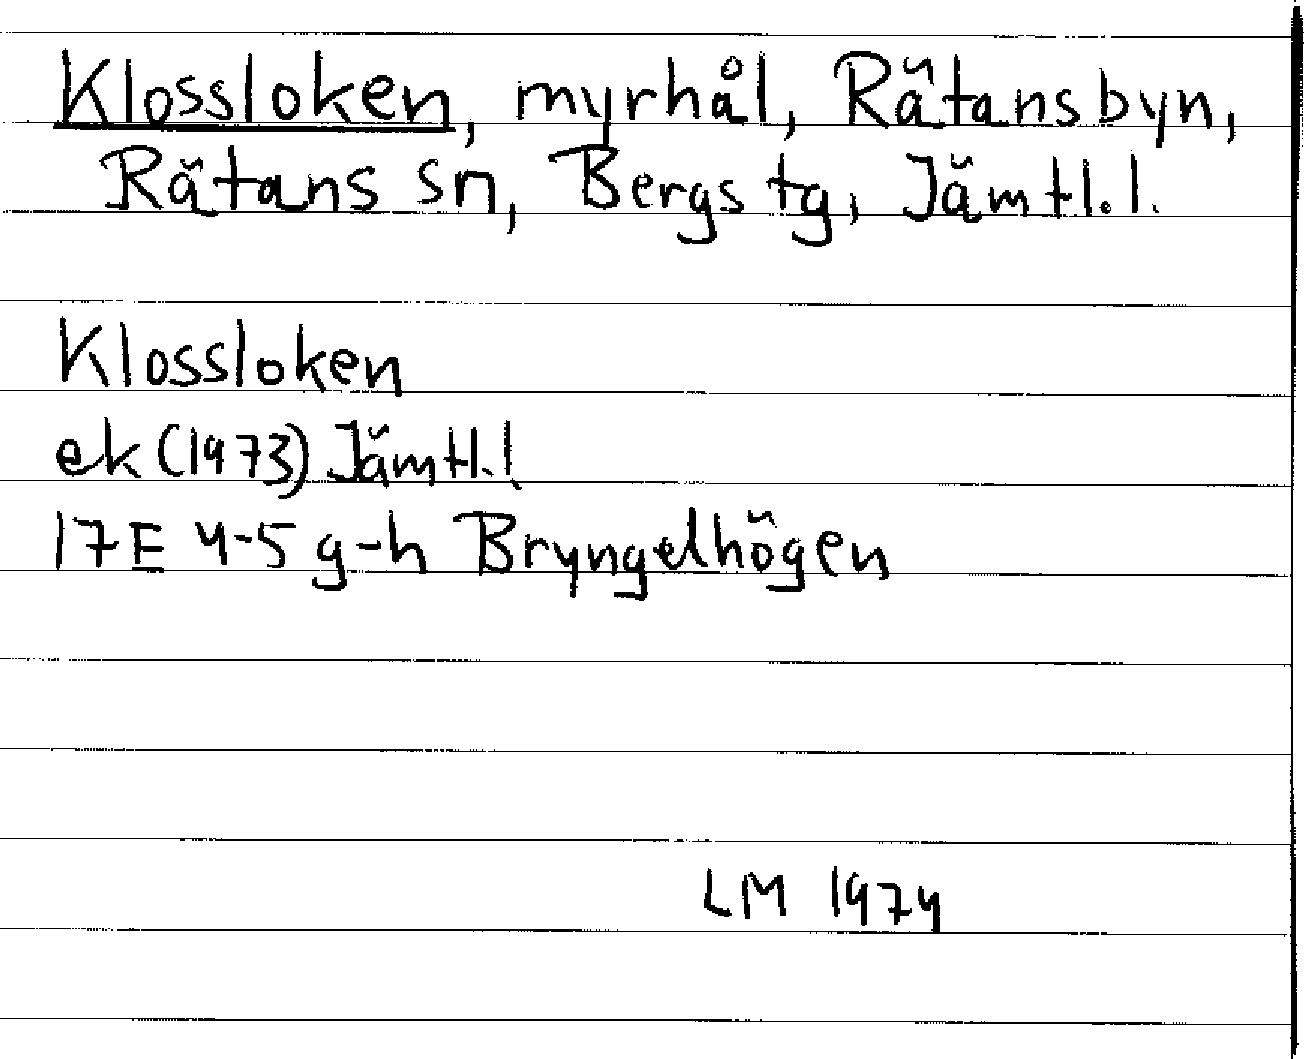 Klossloken, myrhål, Rätansbyn,
Rätans sn, Bergs tg, Jämtl.l.
Klossloken
ek (1973) Jämtl.l
17E 4-5 g-h Bryngelhögen
LM 1974